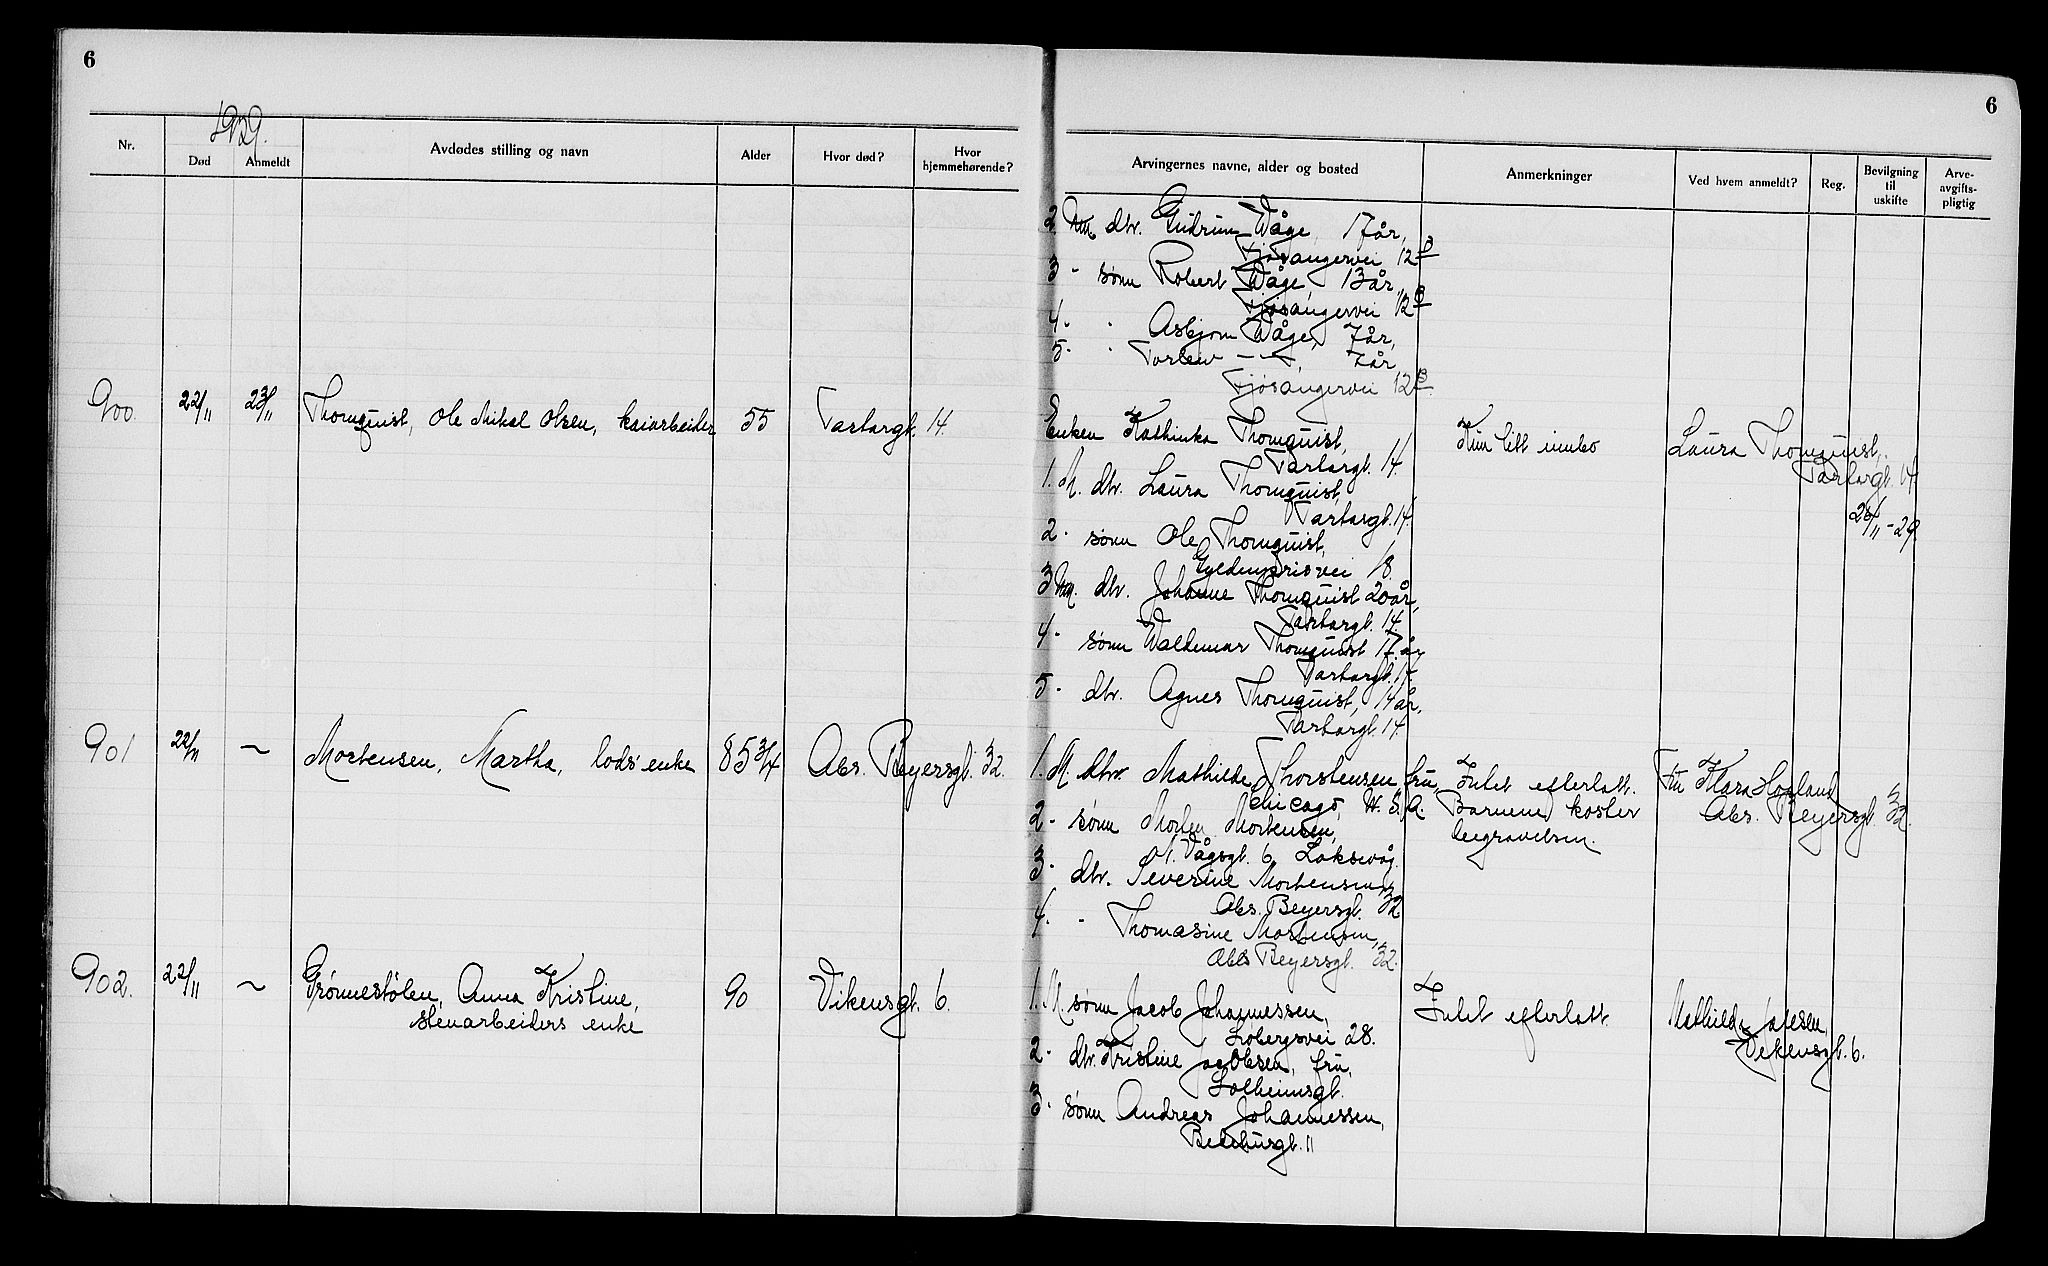 6
1929.
Nr.
Død
Anmeldt
Avdødes stilling og navn
Alder
Hvor død?
Hvor hjemmehørende?
900.
22/11
23/11
Thornquist, Ole Mikal Olsen, kaiarbeider
55
Tartargt. 14.
901
22/11
~
Mortensen, Martha, lods' enke
85 3/4
Abs. Beyersgt. 32.
902.
22/11
~
Grønnestølen, Anna Kristine,
stenarbeiders enke
90
Vikensgt. 6.
6
Arvingernes navne, alder og bosted
Anmerkninger
Ved hvem anmeldt?
Reg.
Bevilgning til uskifte
Arve-avgifts-pligtig
2. Um. dtr. Gudrun Våge, 17 år,
Fjøsangervei 12 B
3 - sønn Robert Våge, 13 år,
Fjøsangervei 12 B
4. - Asbjørn Våge, 7 år,
5 - Torleiv - - 7 år
Fjøsangervei 12 B.
Enken Kathinka Thornquist,
Tartargt. 14.
1. M. dtr. Laura Thornquist,
Tartargt. 14.
2 - sønn Ole Thornquist,
18.
3 Um. dtr. Johanne Thornquist 20 år,
Tartargt. 14.
4 - sønn Waldemar Thornquist 17 år
Tartargt. 14
5 - dtr. Agnes Thornquist, 14 år,
Tartargt. 14.
Kun litt innbo
Laura Thornquist,
Tartargt. 14
26/11-29
1. M. dtr. Mathilde Thorstensen, fru,
Chicago, U.S.A.
2 - sønn Morten Mortensen,
N. Vågsgt. 6 Laksevåg.
3 - dtr. Severine Mortensen,
Abs. Beyersgt. 32
4. - Thomasine Mortensen,
Abs Beyersgt. 32.
Intet efterlatt.
Barnene koster
begravelsen.
Fru Klara Hopland
Abs. Beyersgt. 32.
1. M. sønn Jacob Johannessen,
Løbergsvei 28.
2 - dtr. Kristine Jacobsen, fru,
Solheimsgt.
3 - sønn Andreas Johannessen,
11
Intet efterlatt.
Mathilde
Vikensgt. 6.